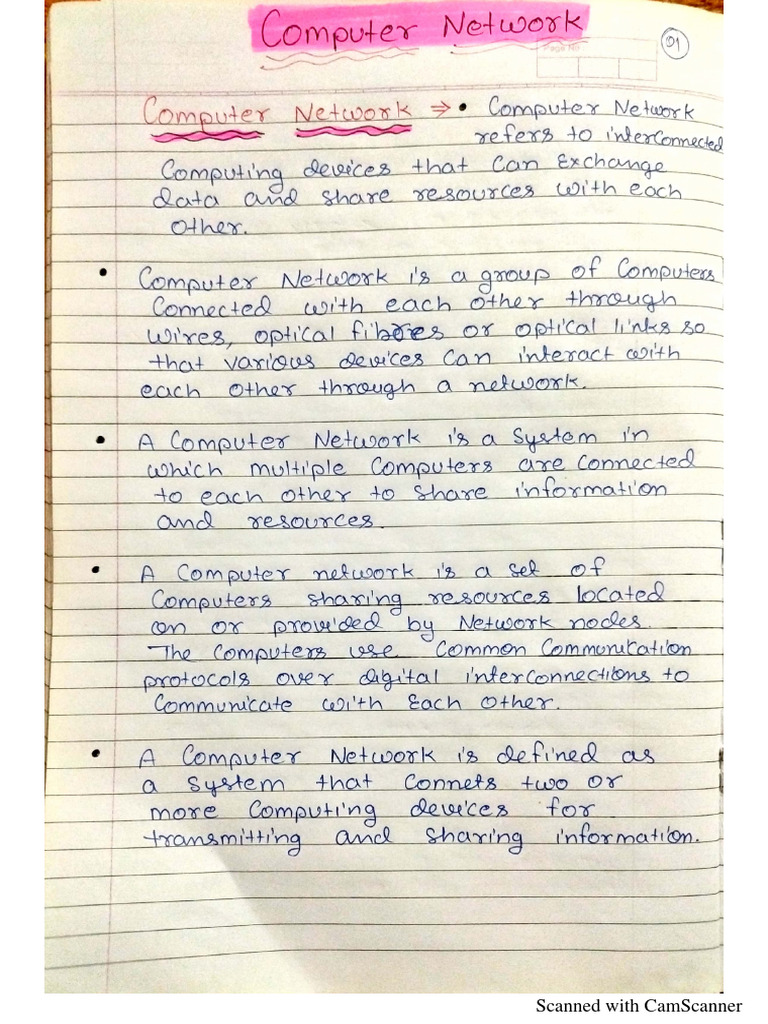 Computer Network
01
Page No
Computer Network ⇒ • Computer Network
refers to interconnected
Computing devices that can Exchange
data and share resources with each
other.
• Computer Network is a group of Computers
Connected with each other through
wires, optical fibres or optical links so
that various devices can interact with
each other through a network.
• A Computer Network is a system in
which multiple Computers are connected
to each other to share information
and resources.
• A Computer network is a set of
Computers sharing resources located
on or provided by Network nodes.
The Computers use Common Communication
protocols over digital interconnections to
Communicate with Each Other.
• A Computer Network is defined as
a system that connets two or
more Computing devices for
transmitting and sharing information.
Scanned with CamScanner